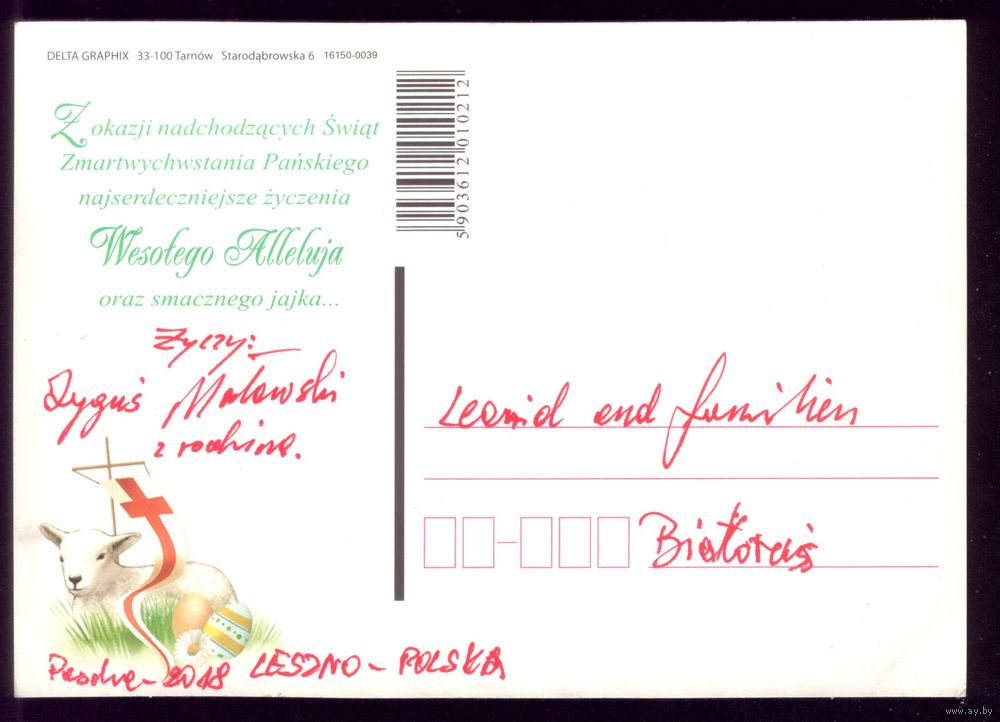 DELTA GRAPHIX 33-100 Tarnów Starodąbrowska 6 16150-0039
Z okazji nadchodzących Świąt
Zmartwychwstania Pańskiego
najserdeczniejsze życzenia
Wesołego Alleluja
oraz smacznego jajka...
Życzy:
Zyguś Matowski
z rodziną.
2018 LESZNO - POLSKA
5903612010212
Leonid and familien
Białoruś
www.ay.by